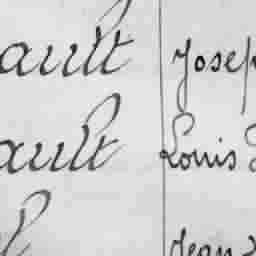 ault Josep
ault Louis
Jean